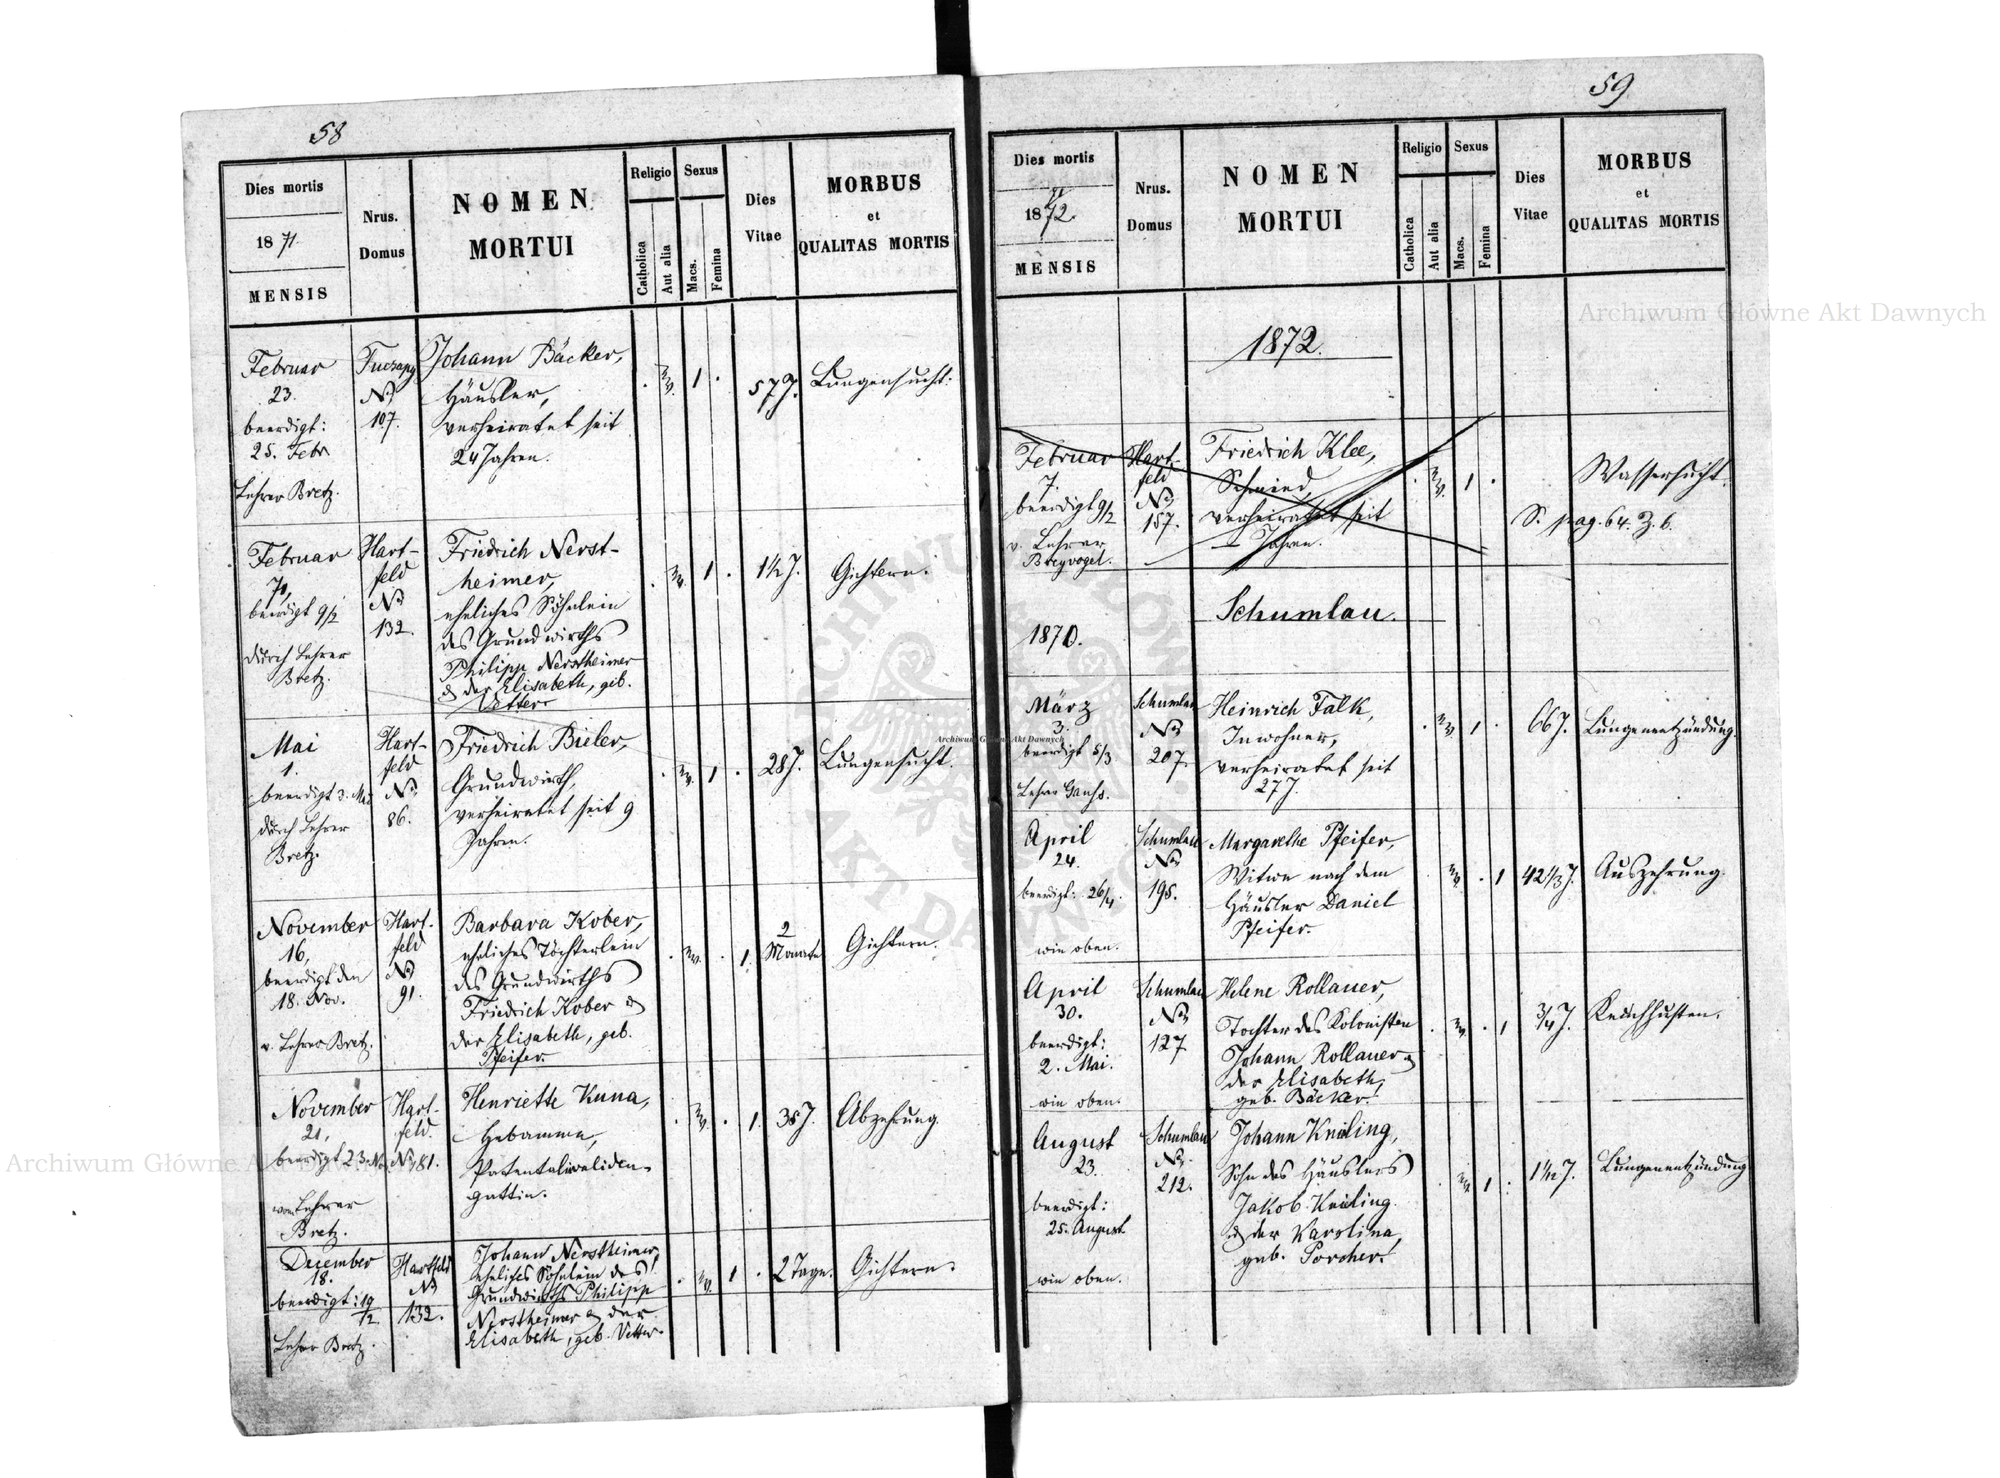 58
Dies mortis
1871.
MENSIS
Nrus.
Domus
NOMEN
MORTUI
Religio
Catholica
Aut alia
Sexus
Macs.
Femina
Dies
Vitae
MORBUS
et
QUALITAS MORTIS
Februar
23.
beerdigt:
25. Febr
Lehrer Bretz.
Tuczapy
No
107.
Johann Bäcker,
Häusler,
verheiratet seit
24 Jahren.
1
57 J.
Lungensucht.
Februar
beerdigt 9/2
durch Lehrer
Bretz.
Hart-
feld
No
132.
Friedrich Nerst-
heimer,
eheliches Söhnlein
des Grundwirths
Philipp Nerstheimer
& der Elisabeth, geb.
Vetter
1
Gichtern.
Mai
1.
beerdigt 3. Mai
durch Lehrer
Bretz.
Hart-
feld
No
86.
Friedrich Bieler,
Grundwirth,
verheiratet seit 9
Jahren.
1
28 J.
Lungensucht.
November
16,
beerdigt den
18. Nov.
v. Lehrer Bretz.
Hart-
feld
No
91.
Barbara Kober,
eheliches Töchterlein
des Grundwirths
Friedrich Kober &
der Elisabeth, geb.
Pfeifer
1.
2
Monate
Gichtern.
November
21,
beerdigt 23. No
vom Lehrer
Bretz.
Hart-
feld.
No 81.
Henriette Kuna,
Hebamme,
Patentalinvaliden-
gattin.
1.
38 J.
Abzehrung.
December
18.
beerdigt: 19/12
Lehrer Bretz.
Hartfeld
No
132.
Johann Nerstheimer,
eheliches Söhnlein des
Grundwirths Philipp
Nerstheimer & der
Elisabeth, geb. Vetter.
1
2 Tage.
Gichtern.
59
Dies mortis
1872.
MENSIS
Nrus.
Domus
NOMEN
MORTUI
Religio
Catholica
Aut alia
Sexus
Macs.
Femina
Dies
Vitae
MORBUS
et
QUALITAS MORTIS
1872.
Februar
7.
beerdigt 9/2
v. Lehrer
Breyvogel.
Hart-
feld
No
157.
Friedrich Klee,
Schmied,
verheiratet seit
— Jahren.
1
Wassersucht.
S. pag. 64. Z. 6.
Schumlau.
1870.
März
3.
beerdigt 5/3
Lehrer Ganss.
Schumlau
No
207.
Heinrich Falk,
Inwohner,
verheiratet seit
27 J.
1
66 J.
Lungenentzündung.
April
24.
beerdigt: 26/4.
wie oben.
Schumlau
No
195.
Margarethe Pfeifer,
Witwe nach dem
Häusler Daniel
Pfeifer
1
42 1/3 J.
Auszehrung.
April
30.
beerdigt:
2. Mai.
wie oben.
Schumlau
No
127
Helene Rollauer,
Tochter des Kolonisten
Johann Rollauer &
der Elisabeth,
geb. Bäcker.
1
3/4 J.
Keichhusten.
August
23.
beerdigt:
25. August
wie oben.
Schumlau
No
212.
Johann Kneling,
Sohn des Häuslers
Jakob Kneling
& der Karolina,
geb. Porcher.
1
Lungenentzündung
Archiwum Główne Akt Dawnych
Archiwum Główne Akt Dawnych
Archiwum Główne Akt Dawnych